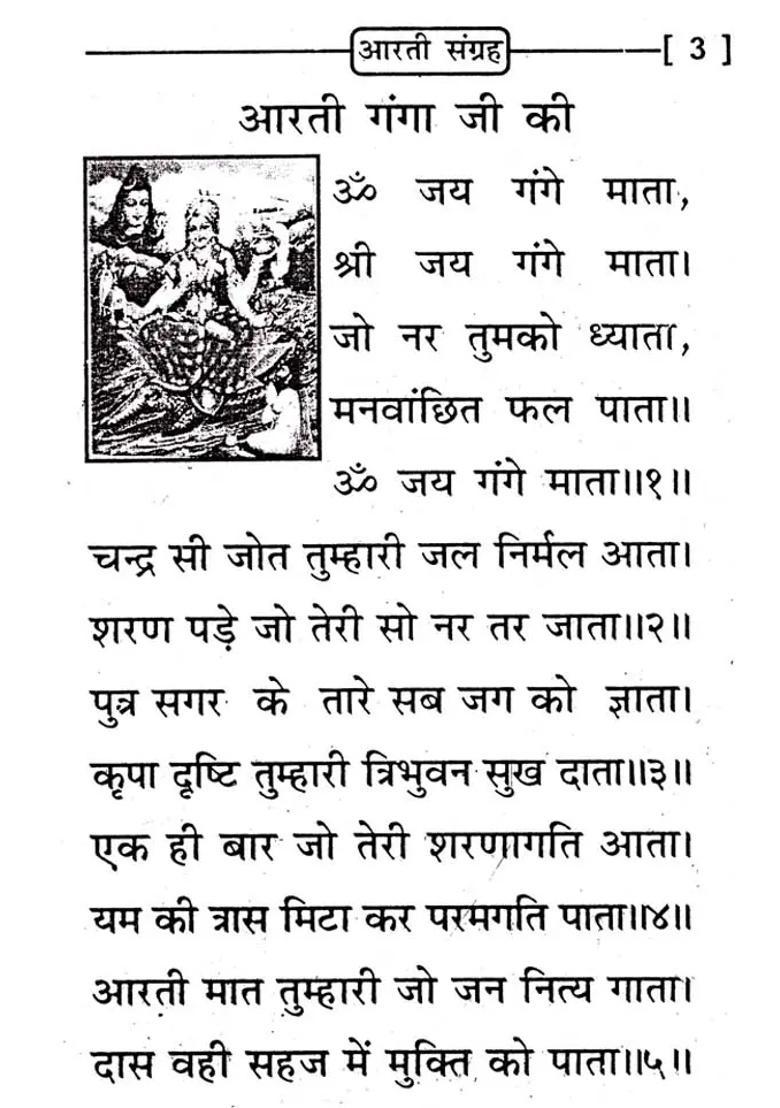 आरती संग्रह [ 3 ]
आरती गंगा जी की
ॐ जय गंगे माता,
श्री जय गंगे माता।
जो नर तुमको ध्याता,
मनवांछित फल पाता॥
ॐ जय गंगे माता॥१॥
चन्द्र सी जोत तुम्हारी जल निर्मल आता।
शरण पड़े जो तेरी सो नर तर जाता॥२॥
पुत्र सगर के तारे सब जग को ज्ञाता।
कृपा दृष्टि तुम्हारी त्रिभुवन सुख दाता॥३॥
एक ही बार जो तेरी शरणागति आता।
यम की त्रास मिटा कर परमगति पाता॥४॥
आरती मात तुम्हारी जो जन नित्य गाता।
दास वही सहज में मुक्ति को पाता॥५॥